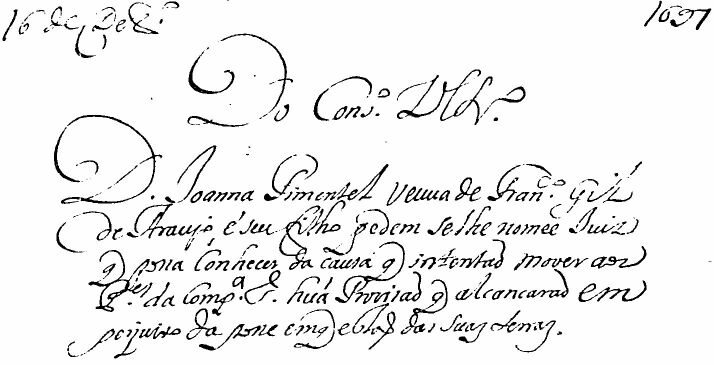 16 de Dez.º 1697
Do Cons.º Ultr.º
D. Joanna Pimentel veuua de Fran.co Gil
de Araujo e seu filho pedem se lhe nomee Juiz
q possa conhecer da causa q intentaõ mover aos
P.es da Comp.ª S.e huã Provisaõ q alcançaraõ em
perjuizo da posse em q estaõ das suas terras.